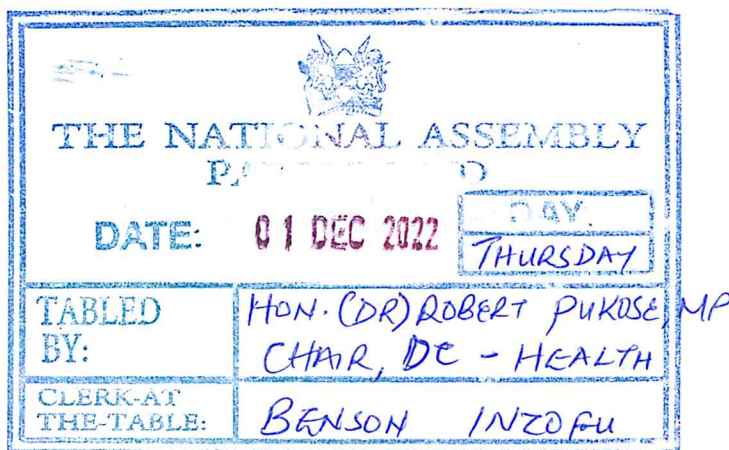 THE NATIONAL ASSEMBLY
DATE: 01 DEC 2022
DAY.
THURSDAY
TABLED BY:
HON. (DR) ROBERT PUKOSE, MP
CHAIR, DC - HEALTH
CLERK-AT THE-TABLE:
BENSON INZOFU